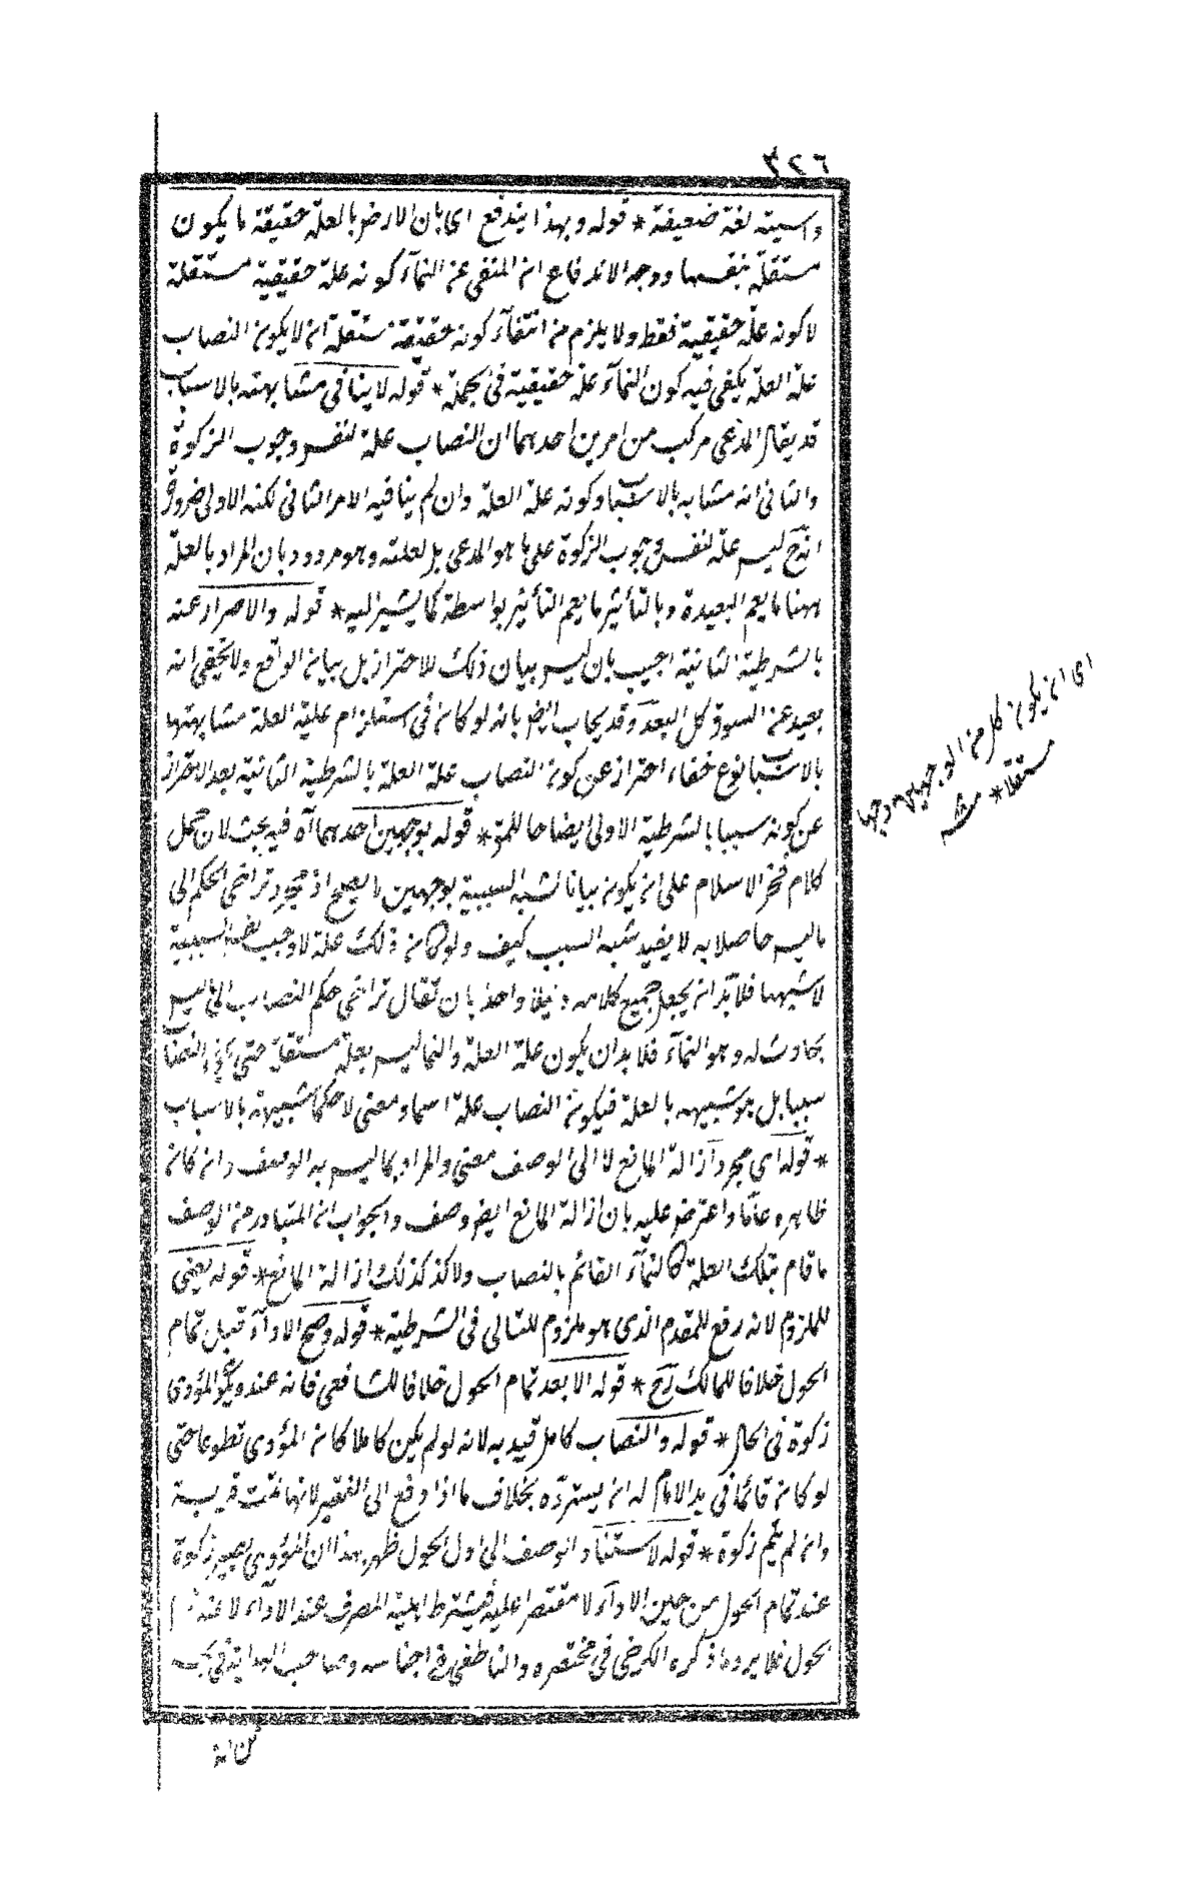 ٣٢٦
واسيته لغة ضعيفة * قوله وبهذا يندفع اى بان الارض بالعلة حقيقة ما يكون
مستقلة بنفسها ووجه الاندفاع ان المنفى عن النمآء كونه علة حقيقية مستقلة
لا كونه علة حقيقية فقط ولا يلزم من انتفآء كونه حقيقة مستقلة ان لا يكون النصاب
علة العلة يكفى فيه كون النمآء علة حقيقية فى الجملة * قوله لا ينافى مشابهته بالاسباب
قد يقال المدعى مركب من امرين احدهما ان النصاب علة لنفس وجوب الزكوة
والثانى انه مشابه بالاسباب وكونه علة العلة وان لم ينافيه الامر الثانى لكنه الاولى ضرورة
انه ح ليس علة لنفس وجوب الزكوة على ما هو المدعى بل لعلته وهو مردود بان المراد بالعلة
ههنا ما يعم البعيدة وبالتأثير ما يعم التأثير بواسطة كما يشير اليه * قوله والاصرار عنه
بالشرطية الثانية اجيب بان ليس بيان ذلك للاحتراز بل بيان الواقع ولا يخفى انه
بعيد عن السوق كل البعد وقد يجاب ايضا بانه لو كان فى استلزام علية العلة مشابهتها
بالاسباب نوع خفاء احترز عن كون النصاب علة العلة بالشرطية الثانية بعد الاحتراز
عن كونه سببا بالشرطية الاولى ايضاحا للمق * قوله بوجهين احدهما آه فيه بحث لان حمل
كلام فخر الاسلام على ان يكون بيانا لشبه السببية بوجهين لا يصح اذ مجرد تراخى الحكم الى
ما ليس حاصلا به لا يفيد شبه السبب كيف ولو كان ذلك علة لاوجب نفس السببية
لا شبهها فلا بد ان يجعل جميع كلامه دليلا واحدا بان تقال تراخى حكم النصاب الى ما ليس
بحادث له وهو النمآء فلا بد ان يكون علة العلة والنما ليس بعلة مستقلة حتى يكون النصاب
سببا بل هو شبيهه بالعلة فيكون النصاب علة اسما ومعنى لا حكما شبيهة بالاسباب
* قوله اى مجرد ازالة المانع لا الى الوصف معنى والمراد بما ليس به الوصف وان كان
ظاهره عاما واعترض عليه بان ازالة المانع ايضا وصف والجواب ان المتبادر من الوصف
ما قام بتلك العلة كالنمآء القائم بالنصاب ولا كذ كذلك ازالة المانع * قوله يعنى
للملزوم لانه رفع للمقدم الذى هو ملزوم للتالى فى الشرطية * قوله وصح الادآء قبل تمام
الحول خلافا للمالك رح * قوله الا بعد تمام الحول خلافا للشافعى فانه عنده يكون المؤدى
زكوة فى الحال * قوله والنصاب كامل قيد به لانه لو لم يكن كاملا كان المؤدى تطوعا حتى
لو كان قائما فى يد الامام له ان يسترده بخلاف ما اذا دفع الى الفقير لانها تمت قربة
وان لم يتم زكوة * قوله لاستناد الوصف الى اول الحول ظهر بهذا ان المؤدى يصير زكوة
عند تمام الحول من حين الادآء لا مقتصرا عليه فيشترط اهلية المصرف عند الادآء لا عند تمام
الحول فلا يرد ما ذكره الكرخى فى مختصره والناطفى فى اجناسه وصاحب الهداية فى
اى ان يكون كل من الوجهين وجها
مستقلا * منه